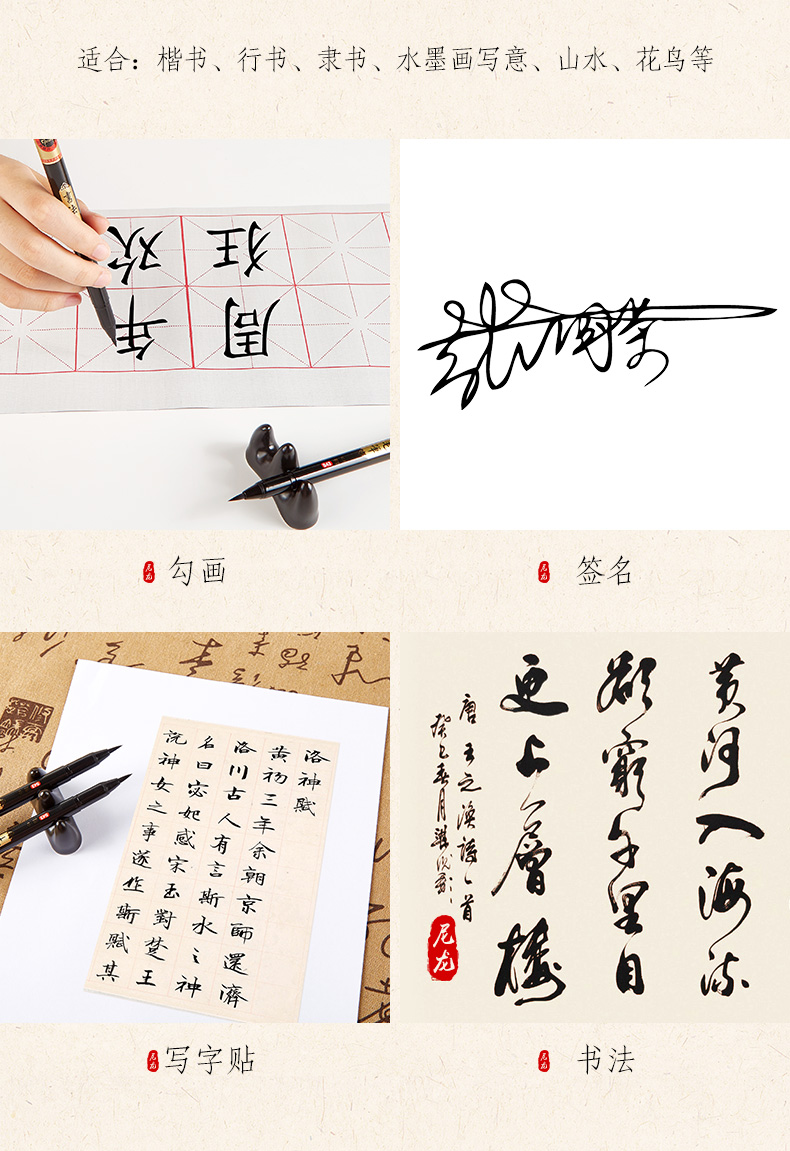 适合：楷书、行书、隶书、水墨画写意、山水、花鸟等
狂欢
周年
尼龙 勾画
尼龙 签名
洛神赋
黄初三年余朝京師還濟
洛川古人有言斯水之神
名曰宓妃感宋玉對楚王
說神女之事遂作斯賦其
黄河入海流
欲窮千里目
更上一層樓
唐王之渙詩一首
癸巳春月
尼龙
尼龙 写字贴
尼龙 书法